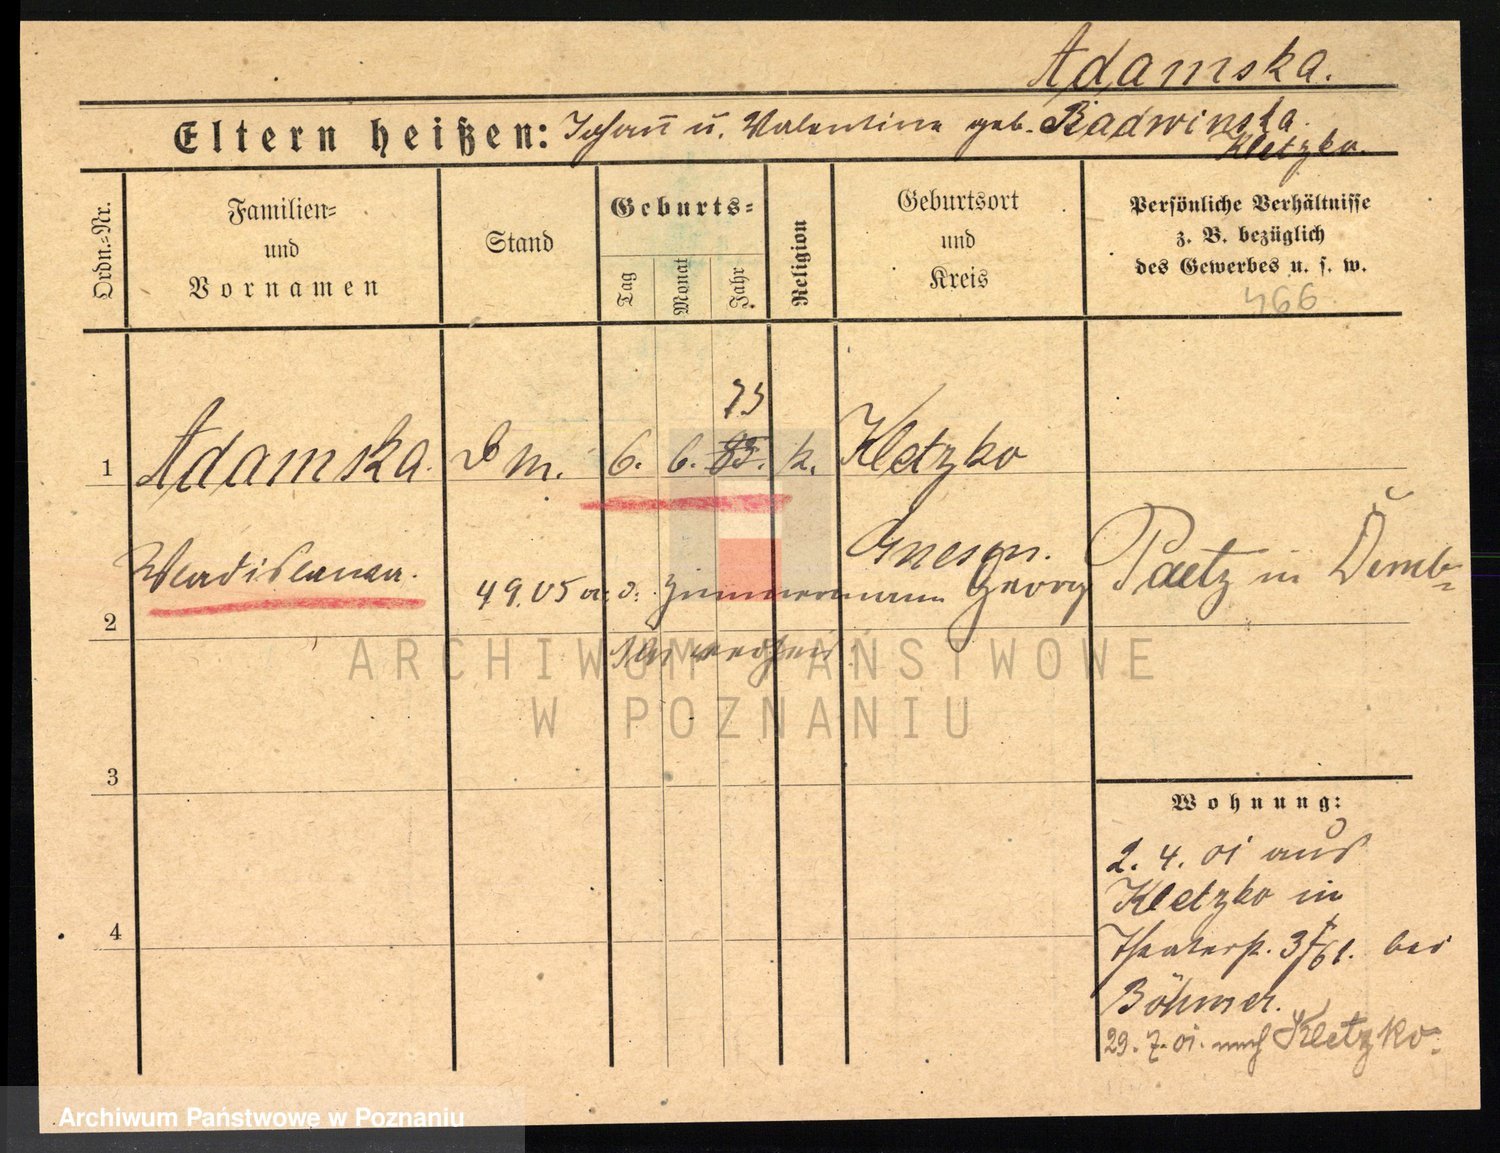 Adamska.
Eltern heißen: Johann u. Valentine geb. Radwinska.
Kletzko.
Ordn.-Nr.
Familien- und Vornamen
Stand
Geburts-
Tag
Monat
Jahr
Religion
Geburtsort und Kreis
Persönliche Verhältnisse
z. B. bezüglich
des Gewerbes u. s. w.
466
73
1 Adamska. Dm. 6. 6. 83. k. Kletzko
Gnesen.
Wladislawa.
4 9. 05 a. d. Zimmermann Georg Paetz in Demb-
2
ARCHIWUM PAŃSTWOWE
W POZNANIU
3
Wohnung:
2. 4. 01 aus
Kletzko in
Theaterstr. 3 bei
4
Böhmer.
29. 7. 01. nach Kletzko.
Archiwum Państwowe w Poznaniu